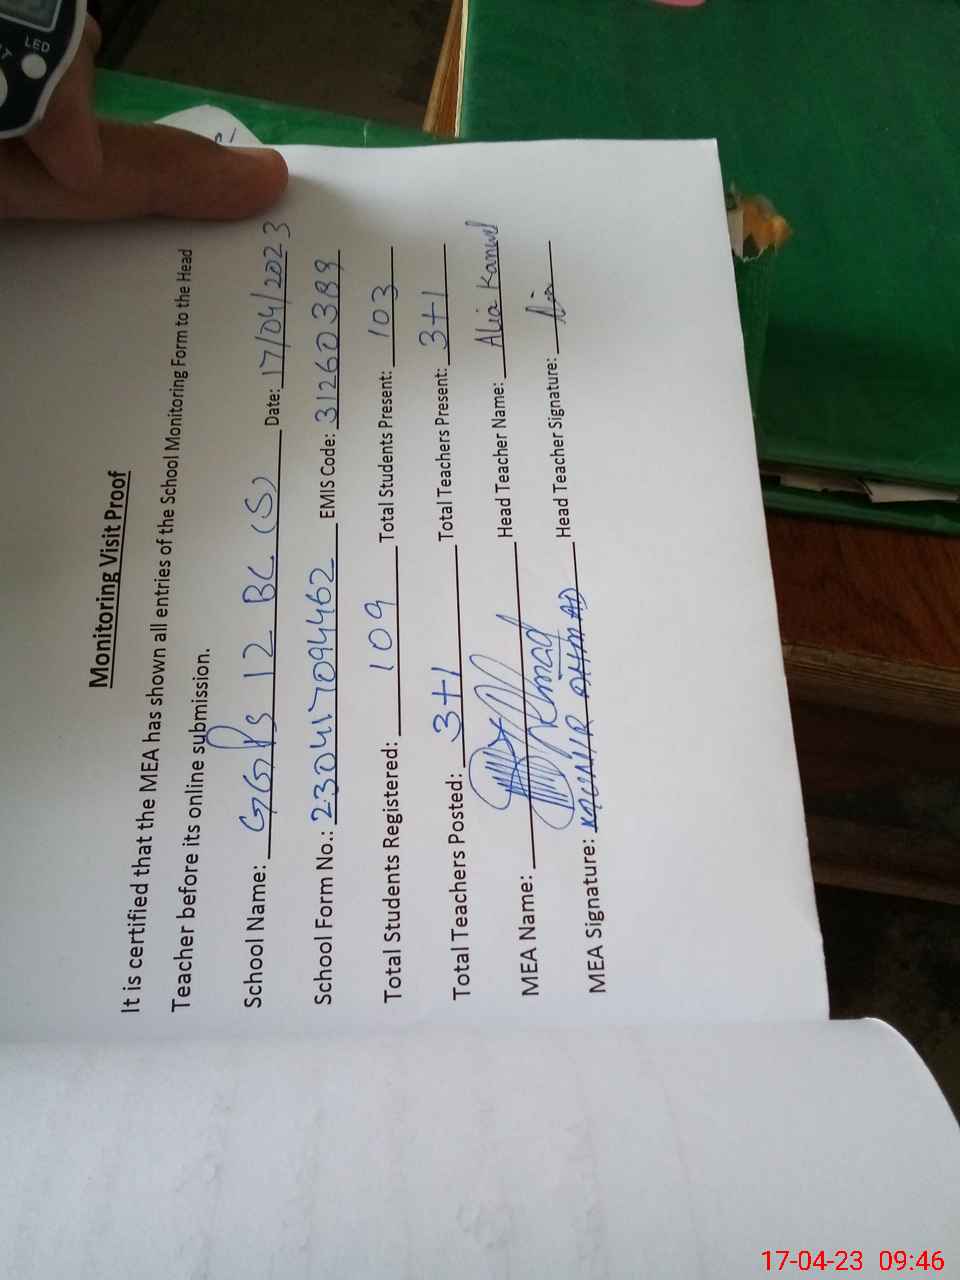 Monitoring Visit Proof
It is certified that the MEA has shown all entries of the School Monitoring Form to the Head
Teacher before its online submission.
School Name: GGPS 12 BC (S) Date: 17/04/2023
School Form No.: 230417094462 EMIS Code: 31260389
Total Students Registered: 109 Total Students Present: 103
Total Teachers Posted: 3+1 Total Teachers Present: 3+1
MEA Name: Head Teacher Name: Alia Kanwal
MEA Signature: AHMAD Head Teacher Signature:
LED
17-04-23 09:46